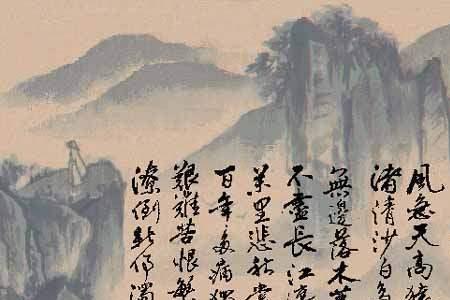 風急天高猿
渚清沙白鳥
無邊落木
不盡長江
萬里悲秋常
百年多病獨
艱難苦恨繁
潦倒新停濁